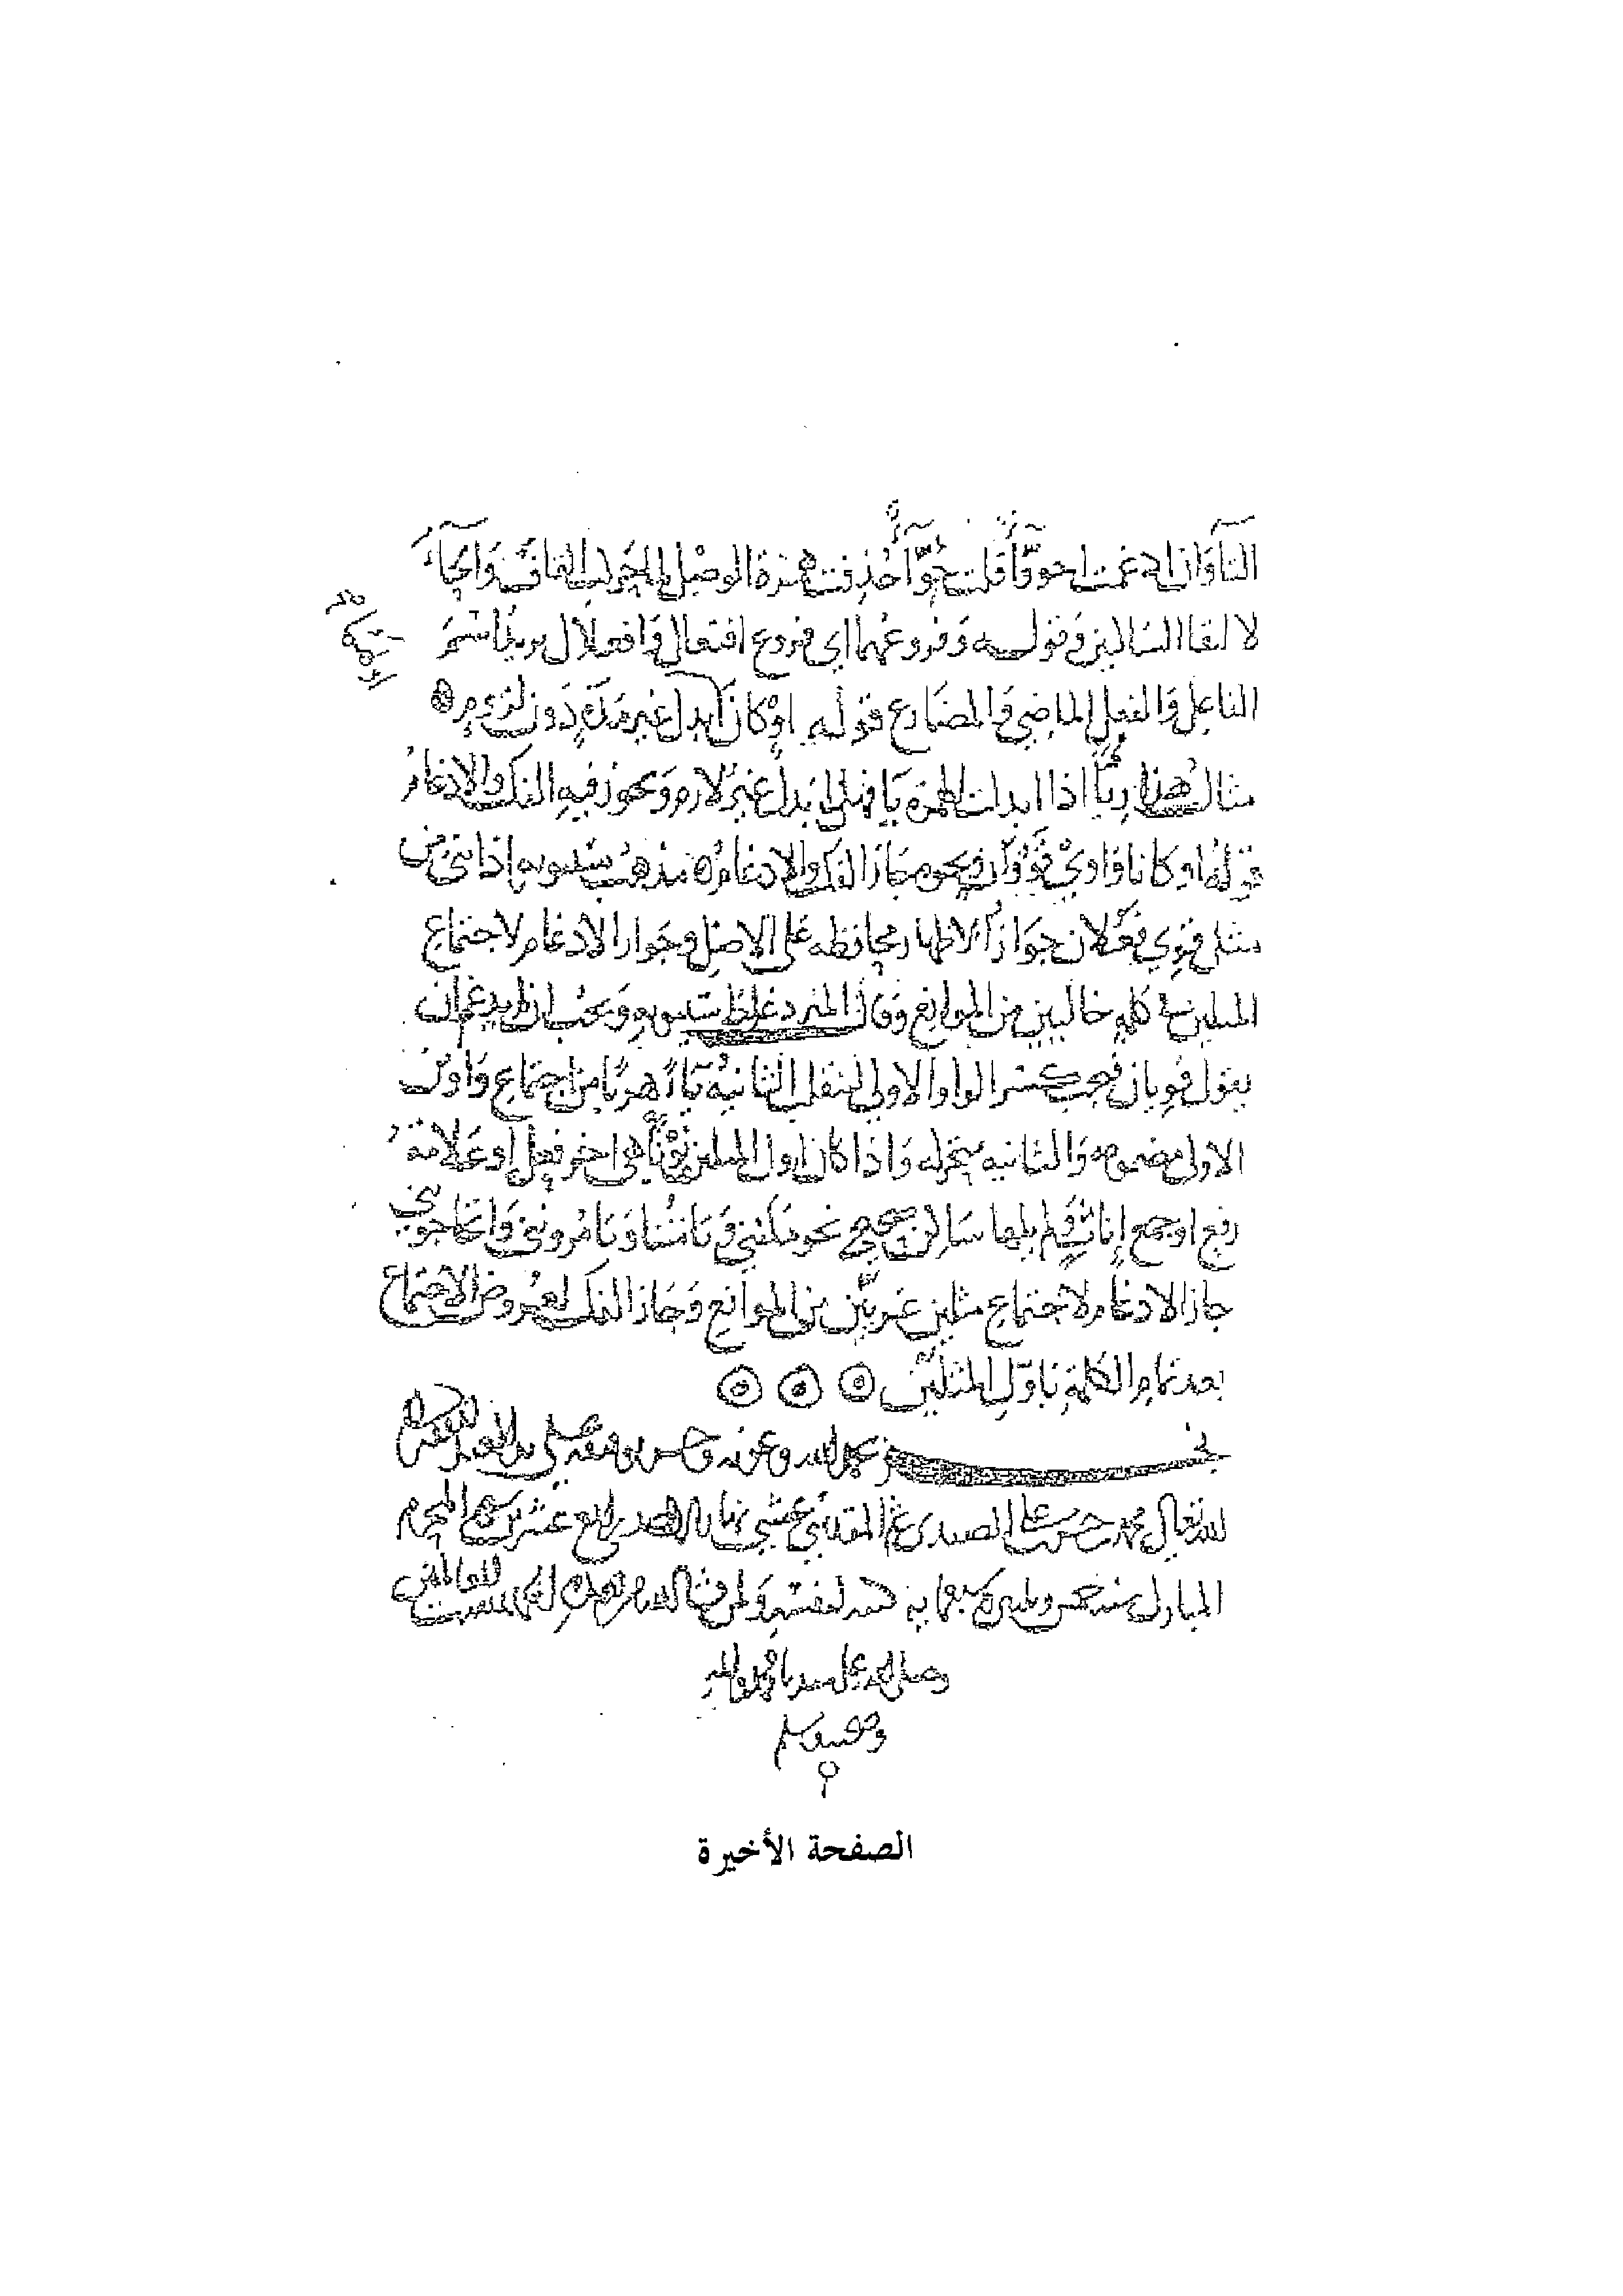 التا وان ادغمت احووّاً قلت حوّاً حذفت همزة الوصل لما تحركت القاف والحاء
لالتقا الساكنين وقوله وفروعهما اي فروع افتعال وافعلال يريد اسم
الفاعل والفعل الماضي والمضارع قوله او كان ابدل غير مدة دون لزوم
مثال هذا ريّاً اذا ابدلت الهمزة يا فهذا بدل غير لازم ويجوز فيه الفك والادغام
قوله او كانا واوي قووان فيجوز الفك والادغام مذهب سيبويه إذا بني من
مثل قوي فعلان جواز الاظهار محافظة على الاصل وجواز الادغام لاجتماع
المثلين في كلمة خاليين من الموانع وقال المبرد غلط سيبويه ويجب ان لم يدغم ان
يقول قويان فيجب كسر الواو الاولى لتنقلب الثانية ياءً هربًا من اجتماع واوين
الاولى مضمومة والثانية متحركة واذا كان اول المثلين نونًا هي اخر فعل او علامة
رفع او جمع إناث ولم يلها ساكن صحيح نحو مكنني و تامنا و تامروني وانحاجوني
جاز الادغام لاجتماع مثلين عريين من الموانع وجاز الفك لعروض الاجتماع
بعد تمام الكلمة باول المثلين
نجز بحمد الله وعونه وحسن توفيقه على يد العبد الفقير
لله تعالى محمد حسن على الصعيدي ثم المقدسي رابع عشر شهر المحرم
المبارك سنة لنفسه ولمن شا الله من بعده والحمد لله رب العالمين
وصلى الله على سيدنا محمد واله
وصحبه وسلم
الصفحة الأخيرة